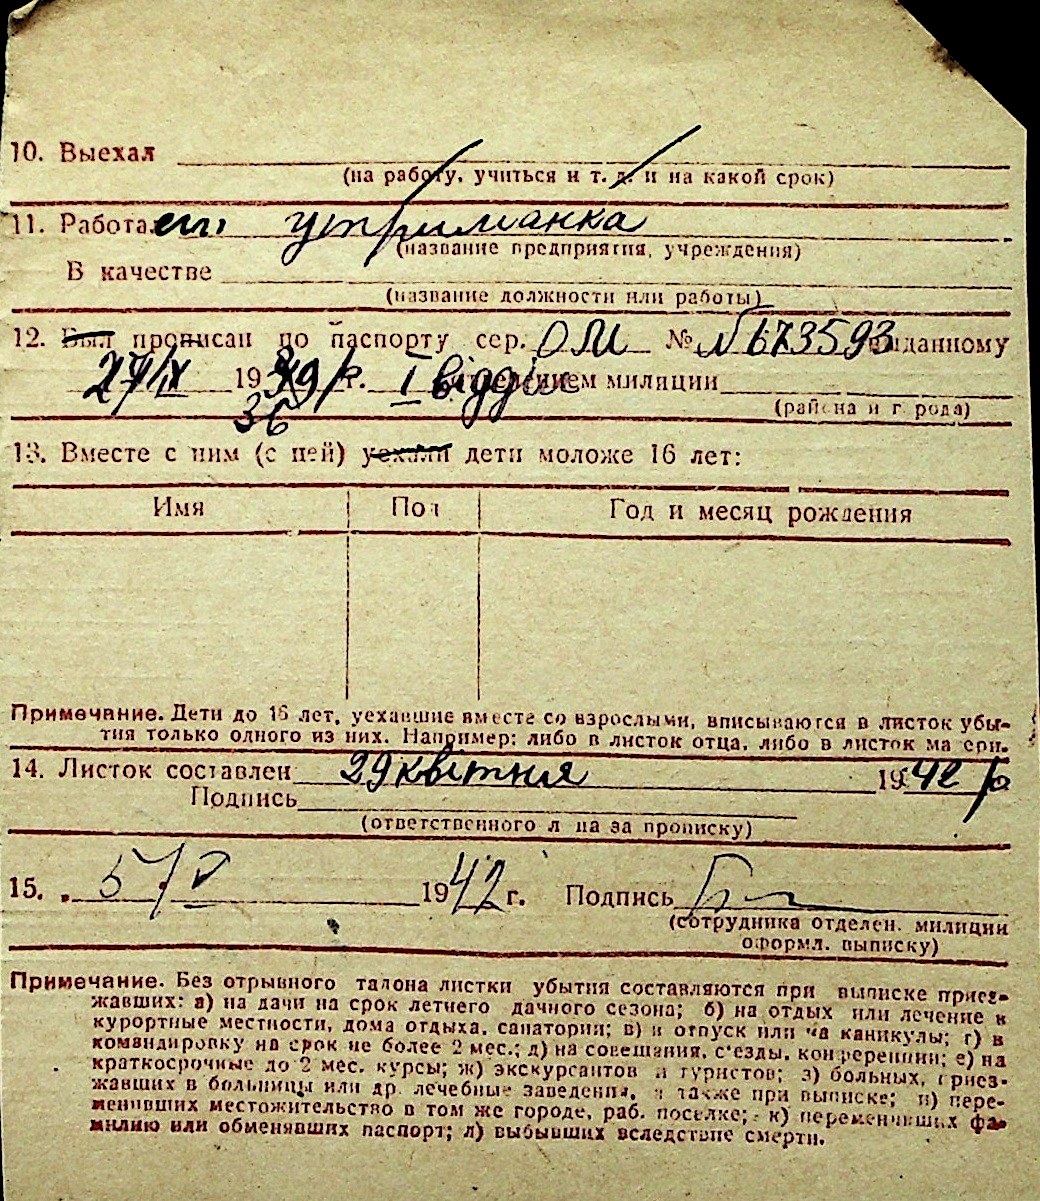 10. Выехал
(на работу, учиться и т. д. и на какой срок)
11. Работал утриманка
(название предприятия, учреждения)
В качестве
(название должности или работы)
12. Был прописан по паспорту сер. ОМ № 673593 выданному
27/IX 1939 р. I відділ отделением милиции
36
(района и города)
13. Вместе с ним (с ней) уехали дети моложе 16 лет:
Имя Пол Год и месяц рождения
Примечание. Дети до 16 лет, уехавшие вместе со взрослыми, вписываются в листок убы-
тия только одного из них. Например: либо в листок отца, либо в листок матери.
14. Листок составлен 29 квітня 1942 р
Подпись
(ответственного лица за прописку)
15. 5/V 1942 г. Подпись
(сотрудника отделен. милиции
оформл. выписку)
Примечание. Без отрывного талона листки убытия составляются при выписке приез-
жавших: а) на дачи на срок летнего дачного сезона; б) на отдых или лечение в
курортные местности, дома отдыха, санатории; в) в отпуск или на каникулы; г) в
командировку на срок не более 2 мес.; д) на совещания, съезды, конференции; е) на
краткосрочные до 2 мес. курсы; ж) экскурсантов и туристов; з) больных, приез-
жавших в больницы или др. лечебные заведения, а также при выписке; и) пере-
менивших местожительство в том же городе, раб. поселке; к) переменивших фа-
милию или обменявших паспорт; л) выбывших вследствие смерти.